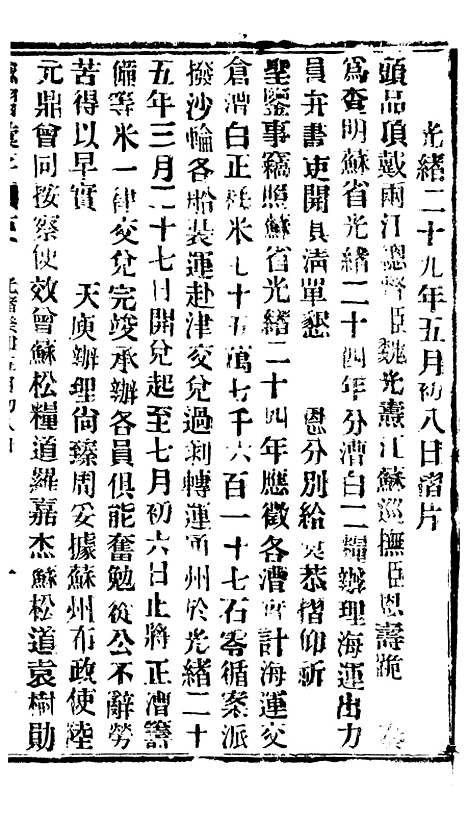 光緒二十九年五月初八日摺片
頭品頂戴兩江總督臣魏光燾江蘇巡撫臣恩壽跪 奏
爲查明蘇省光緒二十四年分漕白二糧辦理海運出力
員弁書吏開具淸單懇 恩分別給奬恭摺仰祈
聖鑒事竊照蘇省光緒二十四年應徵各漕實計海運交
倉漕白正耗米七十五萬七千六百一十七石零循案派
撥沙輪各船裝運赴津交兌過剝轉運通州於光緒二十
五年三月二十七日開兌起至七月初六日止將正漕籌
備等米一律交兌完竣承辦各員俱能奮勉從公不辭勞
苦得以早實 天庾辦理尙臻周妥據蘇州布政使陸
元鼎會同按察使效曾蘇松糧道羅嘉杰蘇松道袁樹勛
光緒癸卯五月初八日 一